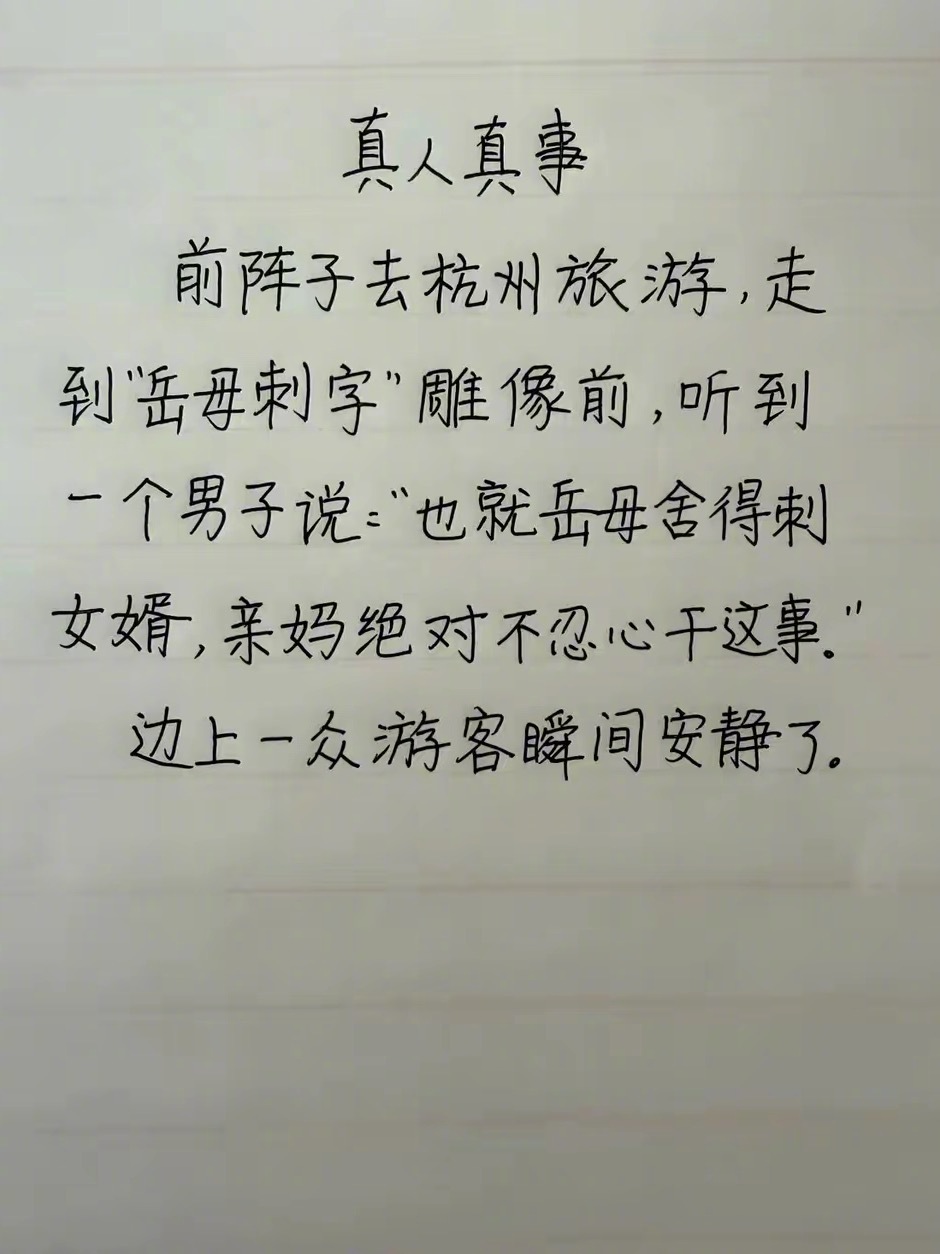 真人真事
前阵子去杭州旅游，走
到“岳母刺字”雕像前，听到
一个男子说：“也就岳母舍得刺
女婿，亲妈绝对不忍心干这事。”
边上一众游客瞬间安静了。